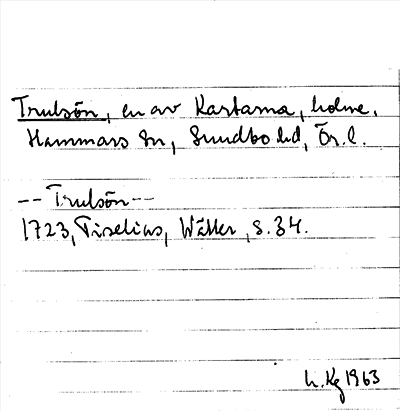 Trulsön, en av Kartarna, holme,
Hammars sn, Sundbo hd, Ör. l.
-- Trulsön --
1723, Tiselius, Wätter, s. 34.
L. Kg 1963